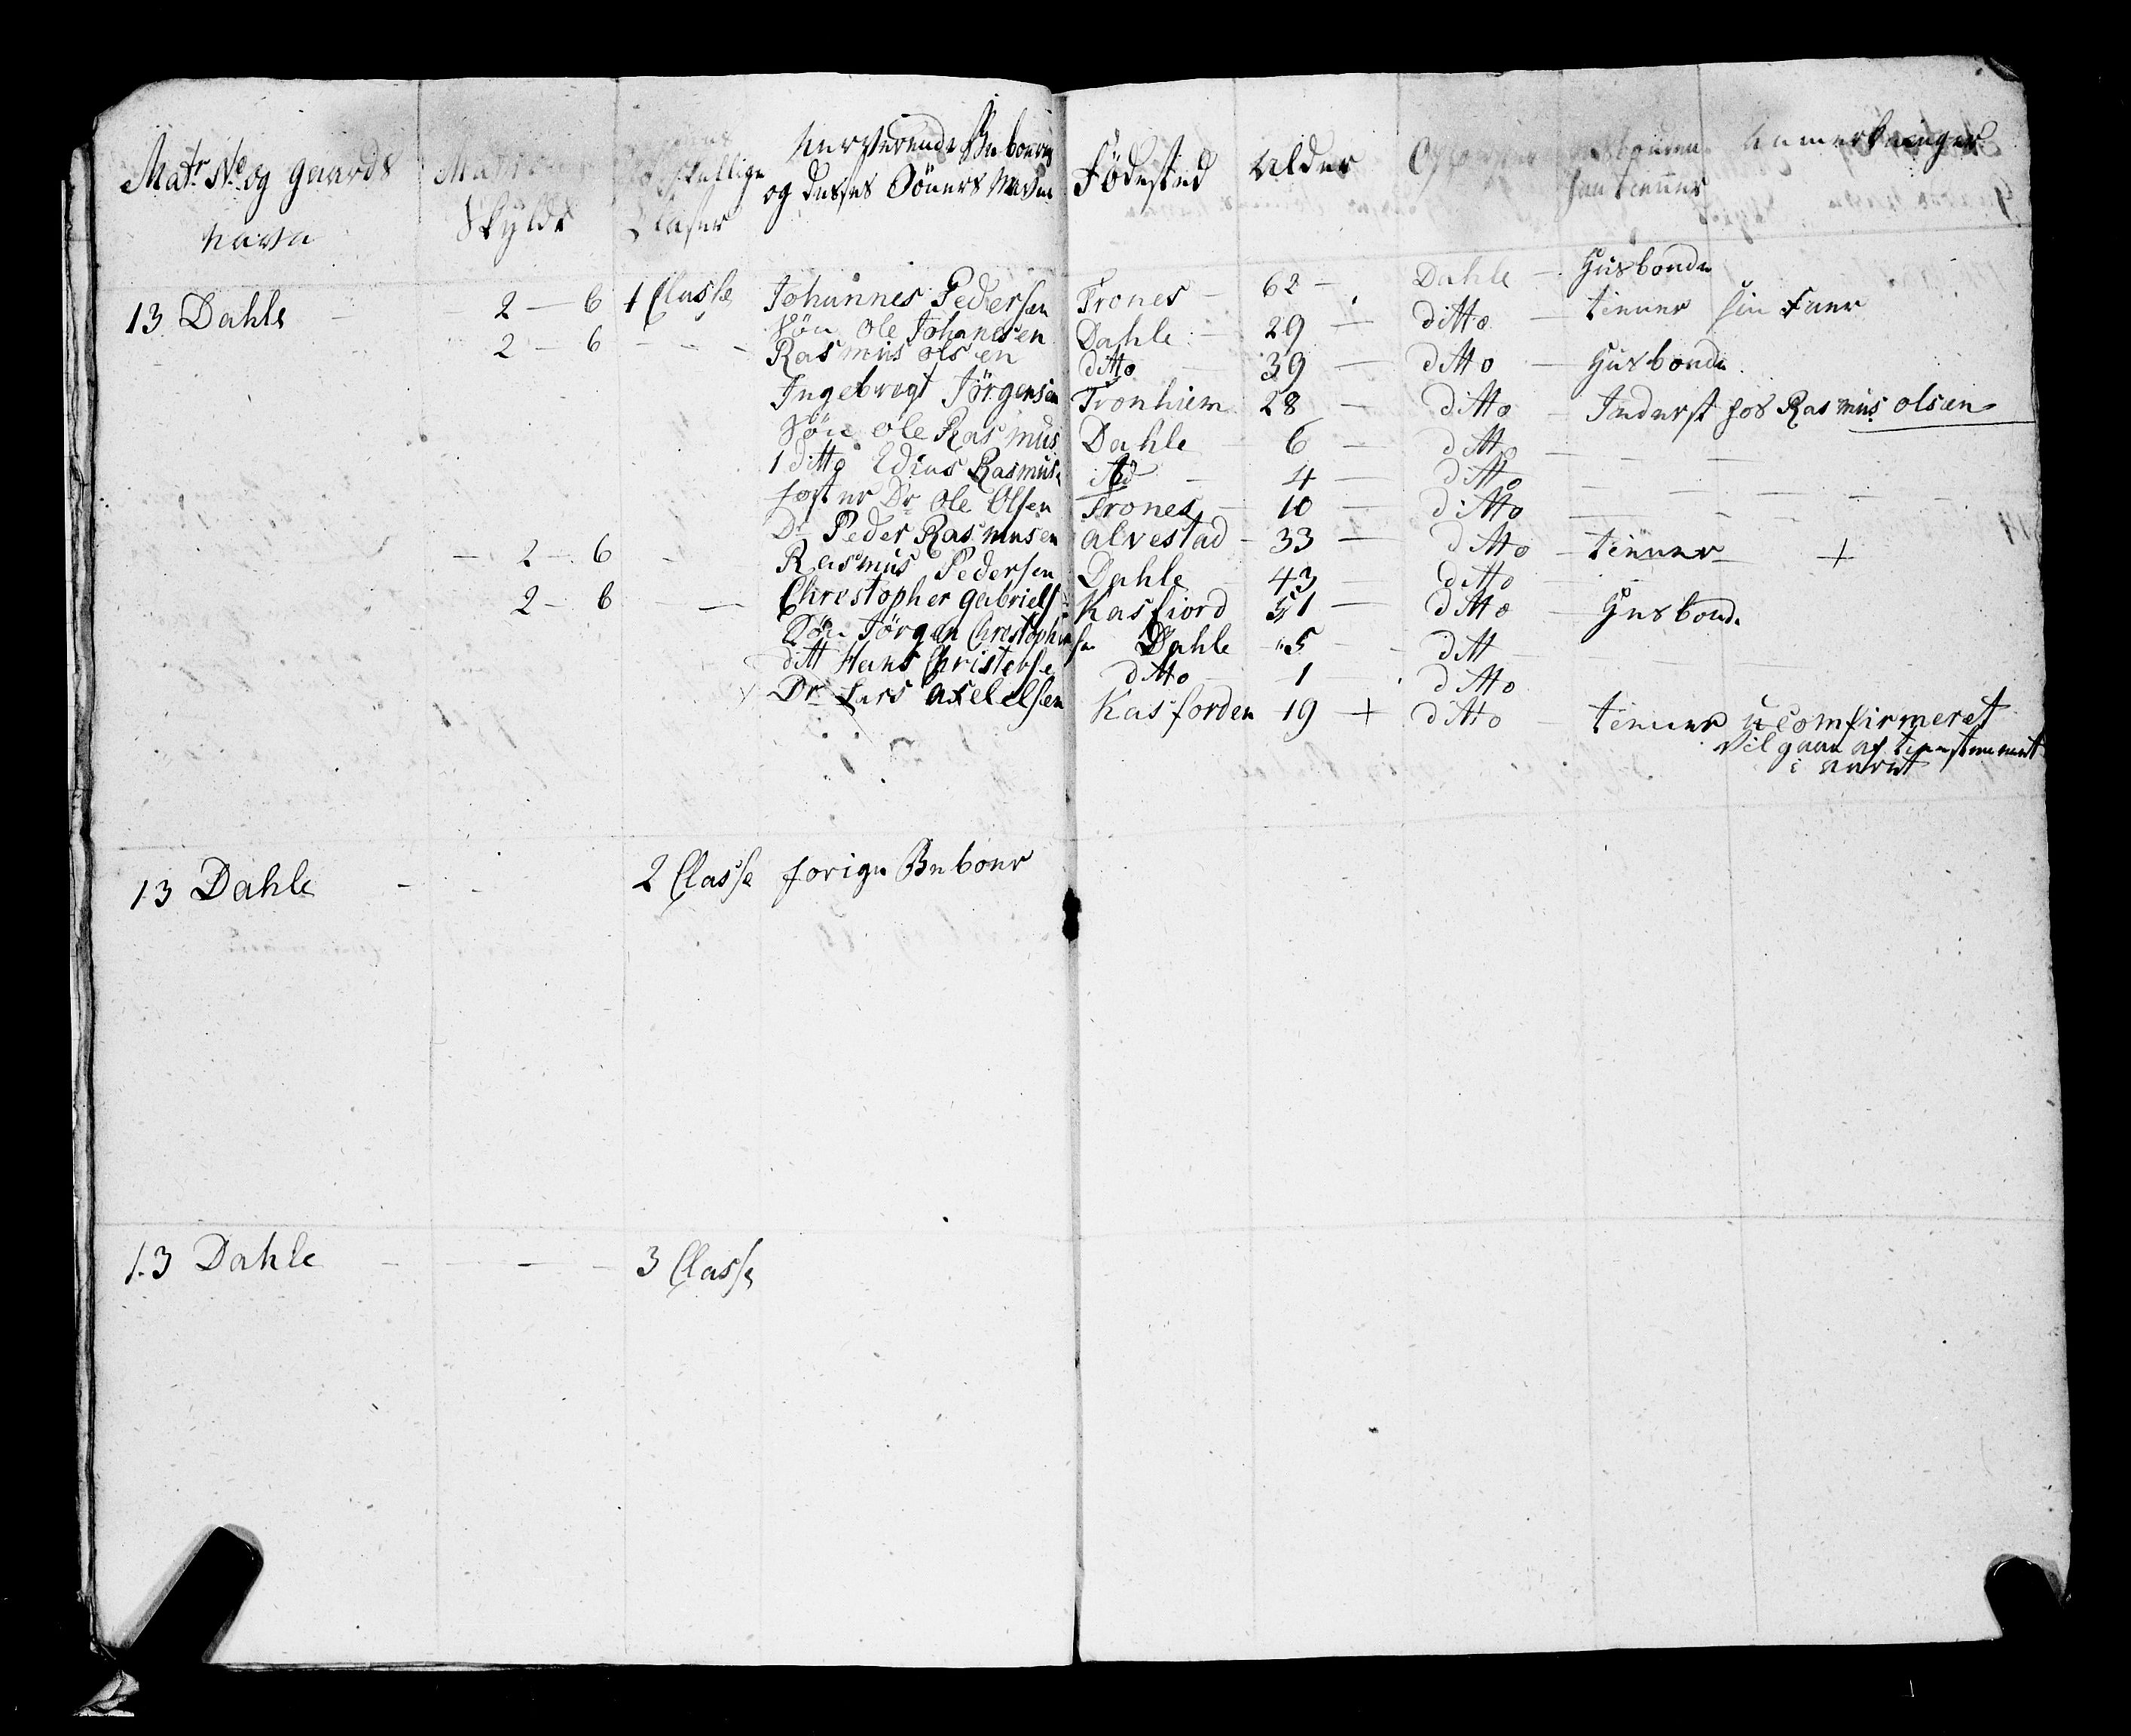 Matr No og gaards Navn
Skyld
Claser
Nærværende Beboere og disses Söners Navn
Födested
Alder
Anmerkninger
13 Dahle 2 — 6 1 Classe Johannes Pedersen Trones 62 — Dahle — Husbonde
Sön Ole Johanesen Dahle 29 — ditto — tienner sin Faer
2 — 6 Rasmus olsen ditto 39 — ditto — Husbonde
Ingebregt Jörgensen Tronhiem 28 — ditto — Inderst hos Rasmus olsen
Sön Ole Rasmus Dahle 6 — ditto
1 ditto Edias Rasmus 4 — ditto
foster Dr Ole Olsen Trones 10 — ditto
Dr Peder Rasmusen alvestad — 33 — ditto — tienner +
— 2 — 6 Rasmus Pedersen Dahle 43 — ditto
2 — 6 — Christopher gabriels Kasfiord 51 — ditto — Husbond
Sön Jörgen Chrestophersen Dahle 5 ditt
ditt Hans Christofse ditto 1 ditto
Dr Lars axelelsen Kasforden 19 + ditto — tienner uComfirmeret
Vil gaae af tienstenned
i aaret
13 Dahle — 2 Classe forige Beboer
13 Dahle — 3 Classe